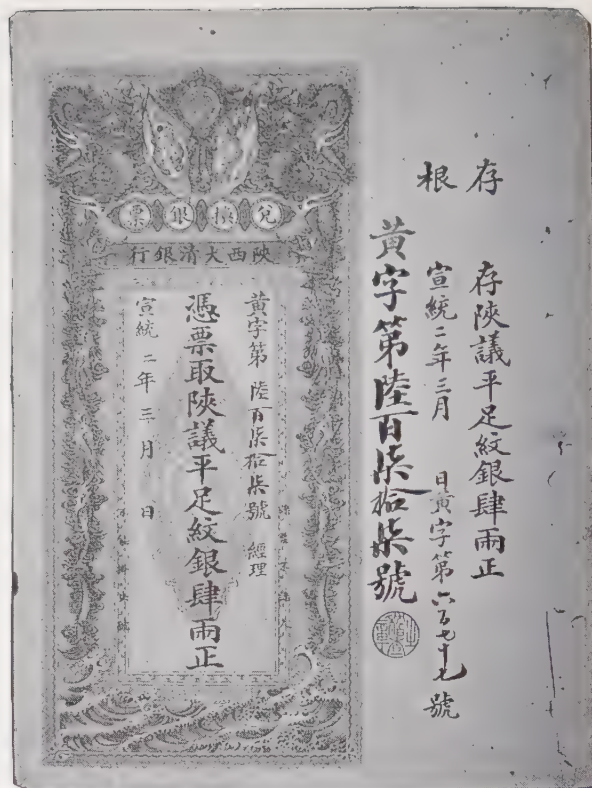 存根
存陝議平足紋銀肆兩正
宣統二年三月 日黄字第六百七十七號
黄字第陸百柒拾柒號
兌換銀票
陝西大清銀行
黄字第陸百柒拾柒號 經理
憑票取陝議平足紋銀肆兩正
宣統二年三月 日